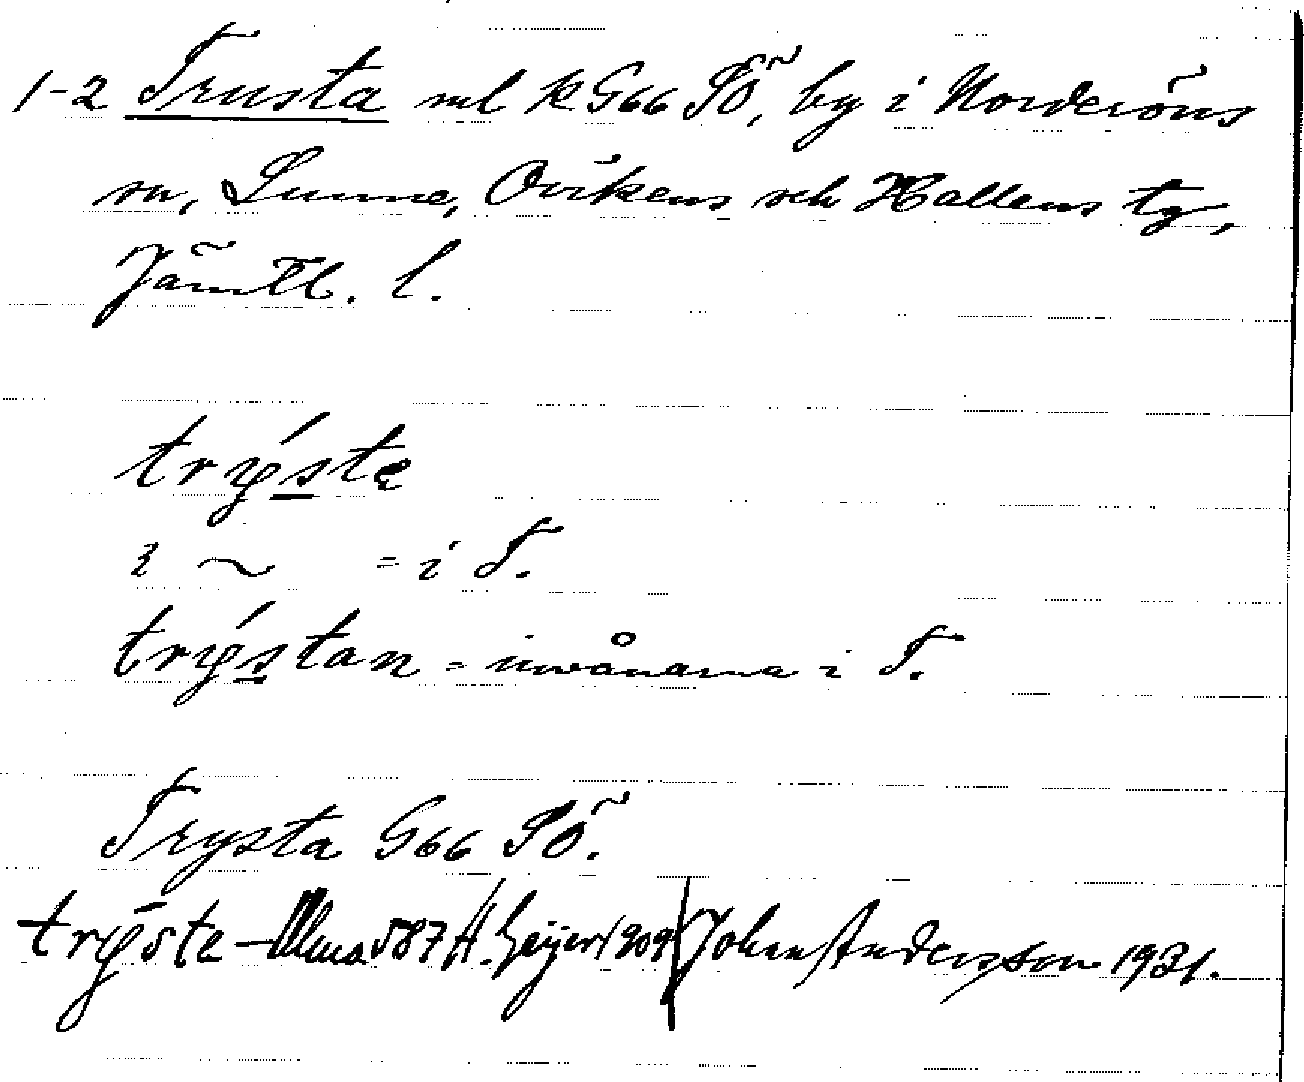 1-2 Trusta ml k G66 SÖ, by i Norderöns
sn, Sunne, Ovikens och Hallens tg,
Jämtl. l.
trýste
i ~ = i T.
trýstan = invånarna i T.
Trysta G66 SÖ.
tryste - Ulma 587 H. Geijer 1909 Johan Andersson 1931.